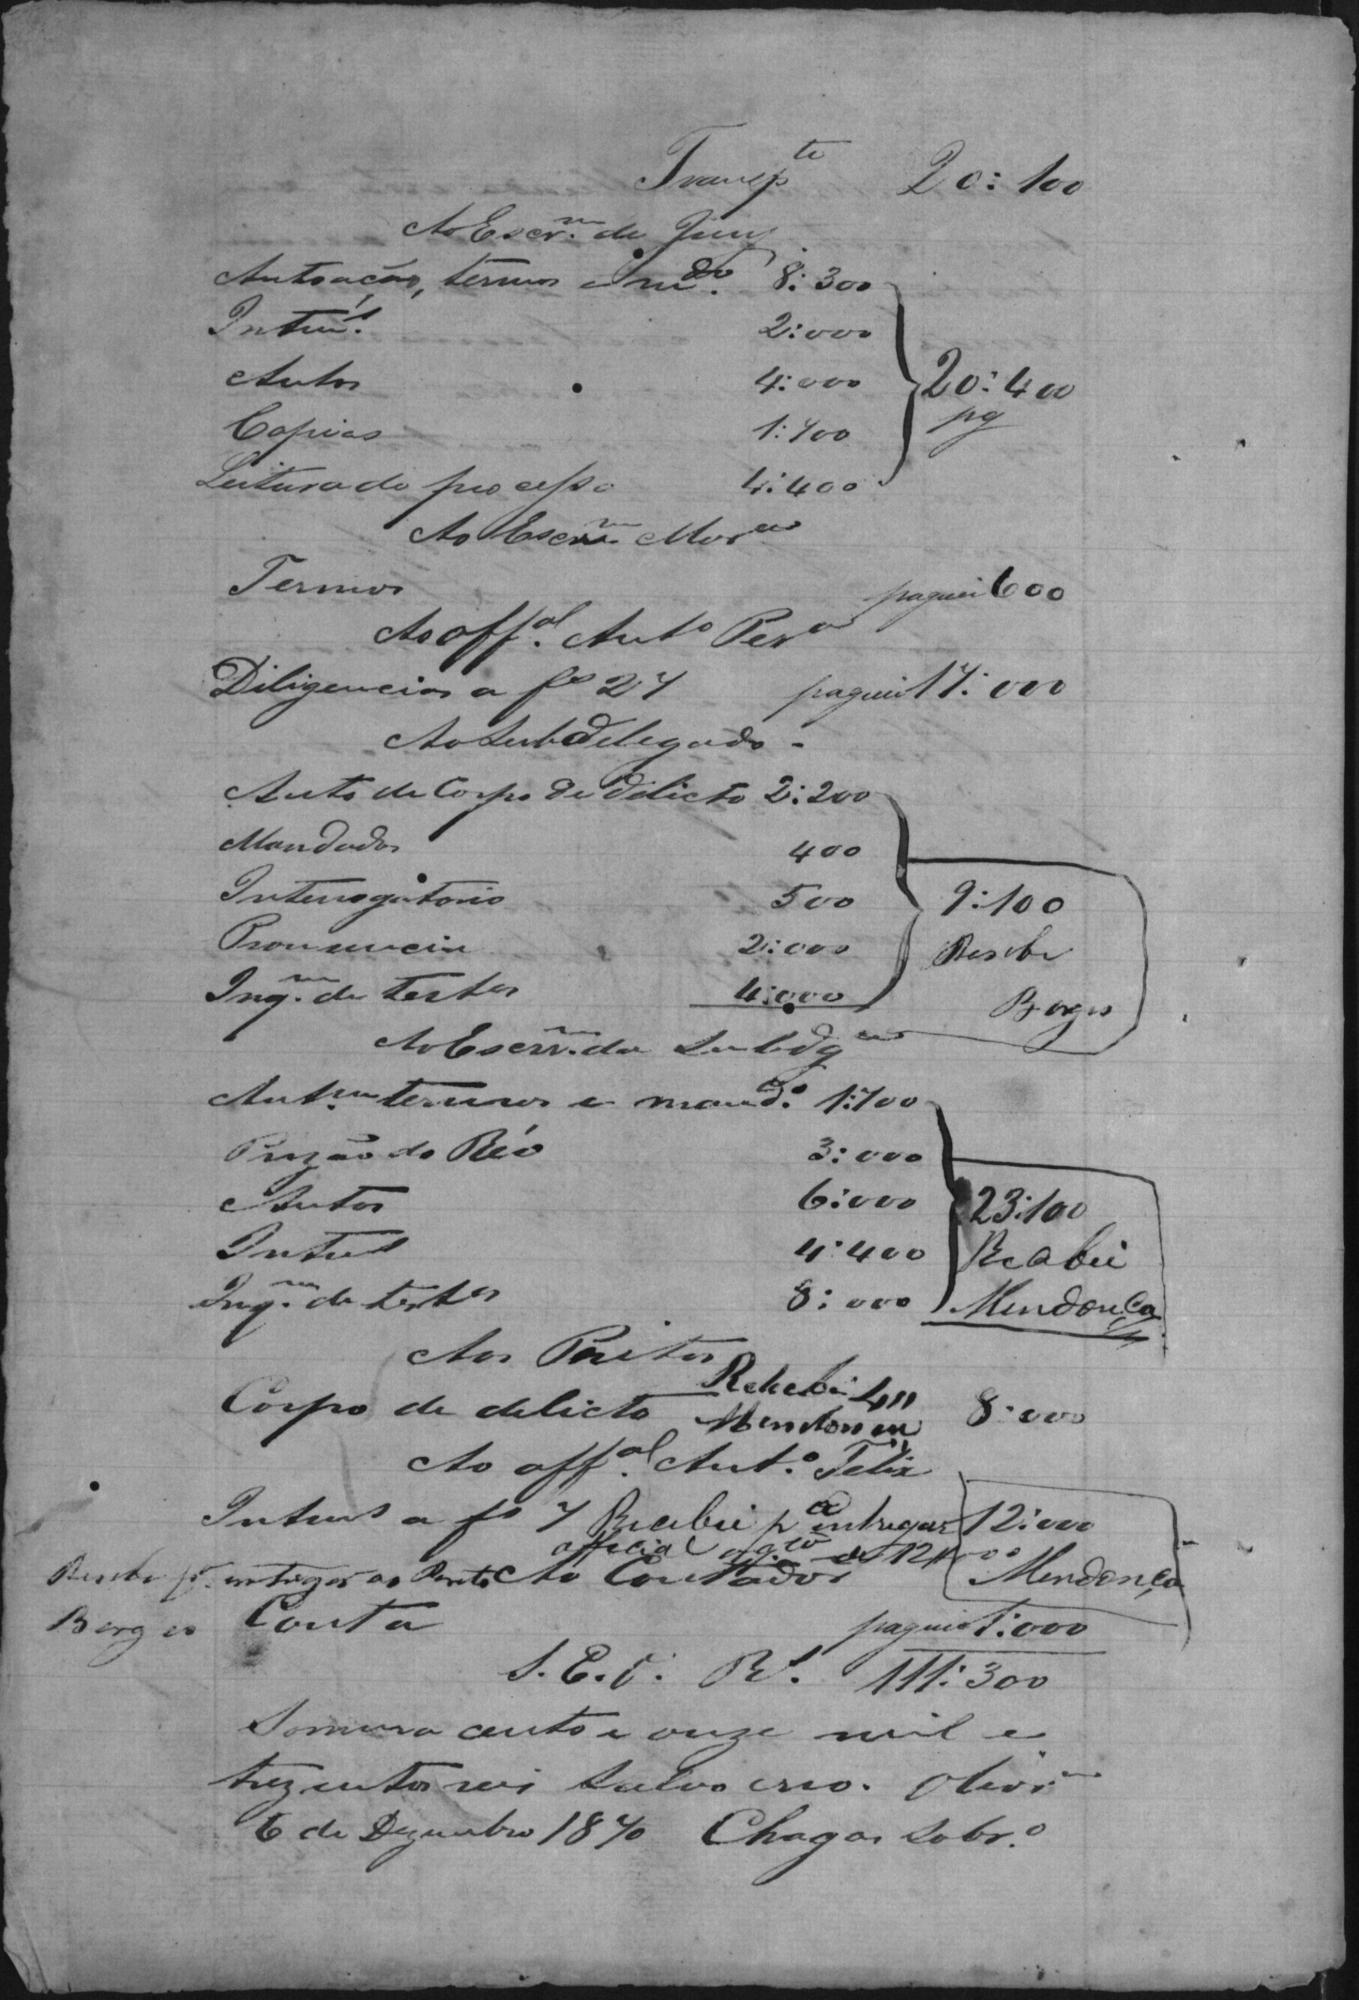 Transp.te 20:100
Ao Escr.m do Juiz
Autoação, termos e m.do 8:300
Intim.s 2:000
Autos 4:000
Copias 1:700
Leitura do processo 4:400
20:400
pg
Ao Escr.m Mor.
Termos paguei 600
Ao off.al Ant.o Per.a
Diligencias a f.s 27 paguei 17:000
Ao Subdelegado
Auto de Corpo de delicto 2:200
Mandados 400
Interrogatorio 500
Pronuncia 2:000
Inq.m de test.as 4:000
9:100
Recebi
Borges
Ao Escr.m da Subdg.
Aut.m termos e mand.o 1:700
Prizão do Réo 3:000
Autos 6:000
Intim.s 4:400
Inq.m de test.as 8:000
23:100
Recebi
Mendonça
Aos Peritos
Corpo de delicto Recebi 4$ 8:000
Mendonça
Ao off.al Ant.o Felix
Intim.s a f.s 7 Recebi p.a entregar 12:000
official
Mendonça
Recebi p.a entregar ao Perito Ao Contador
Borges Conta paguei 1:000
S.E.O. R.s 111:300
Somma cento e onze mil e
trezentos reis salvo erro.
6 de Dezembro 1870 Chagas Sobr.o